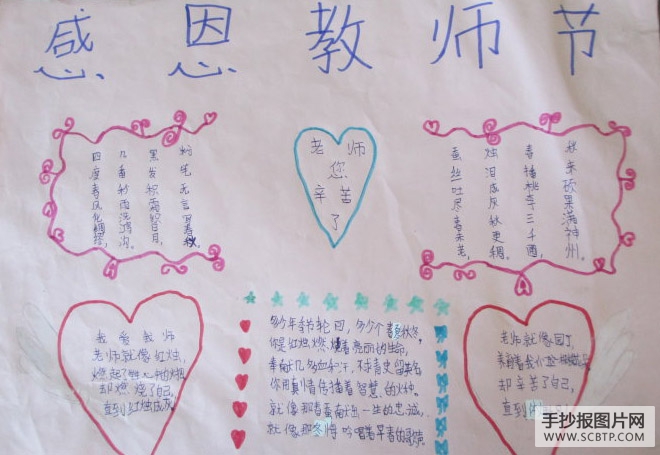 感恩教师节
四度春风化绸缪,
几番秋雨洗鸿沟。
黑发积霜织日月,
粉笔无言写春秋。
老师
您
辛苦
了
蚕丝吐尽春未老,
烛泪成灰秋更稠。
春播桃李三千圃,
秋来硕果满神州。
我爱教师
老师就像红烛,
燃起了
却燃烧了自己,
直到红烛成灰。
多少年季节轮回,多少个春夏秋冬,
你是红烛燃烧着亮丽的生命,
奉献几多血和汗,不求青史留英名
你用真情传播着智慧的火种。
就像那春蚕献出一生的忠诚,
就像那冬梅吟唱着早春的歌声。
老师就像园丁,
养育着我们这些
却辛苦了自己,
直到
手抄报图片网
WWW.SCBTP.COM